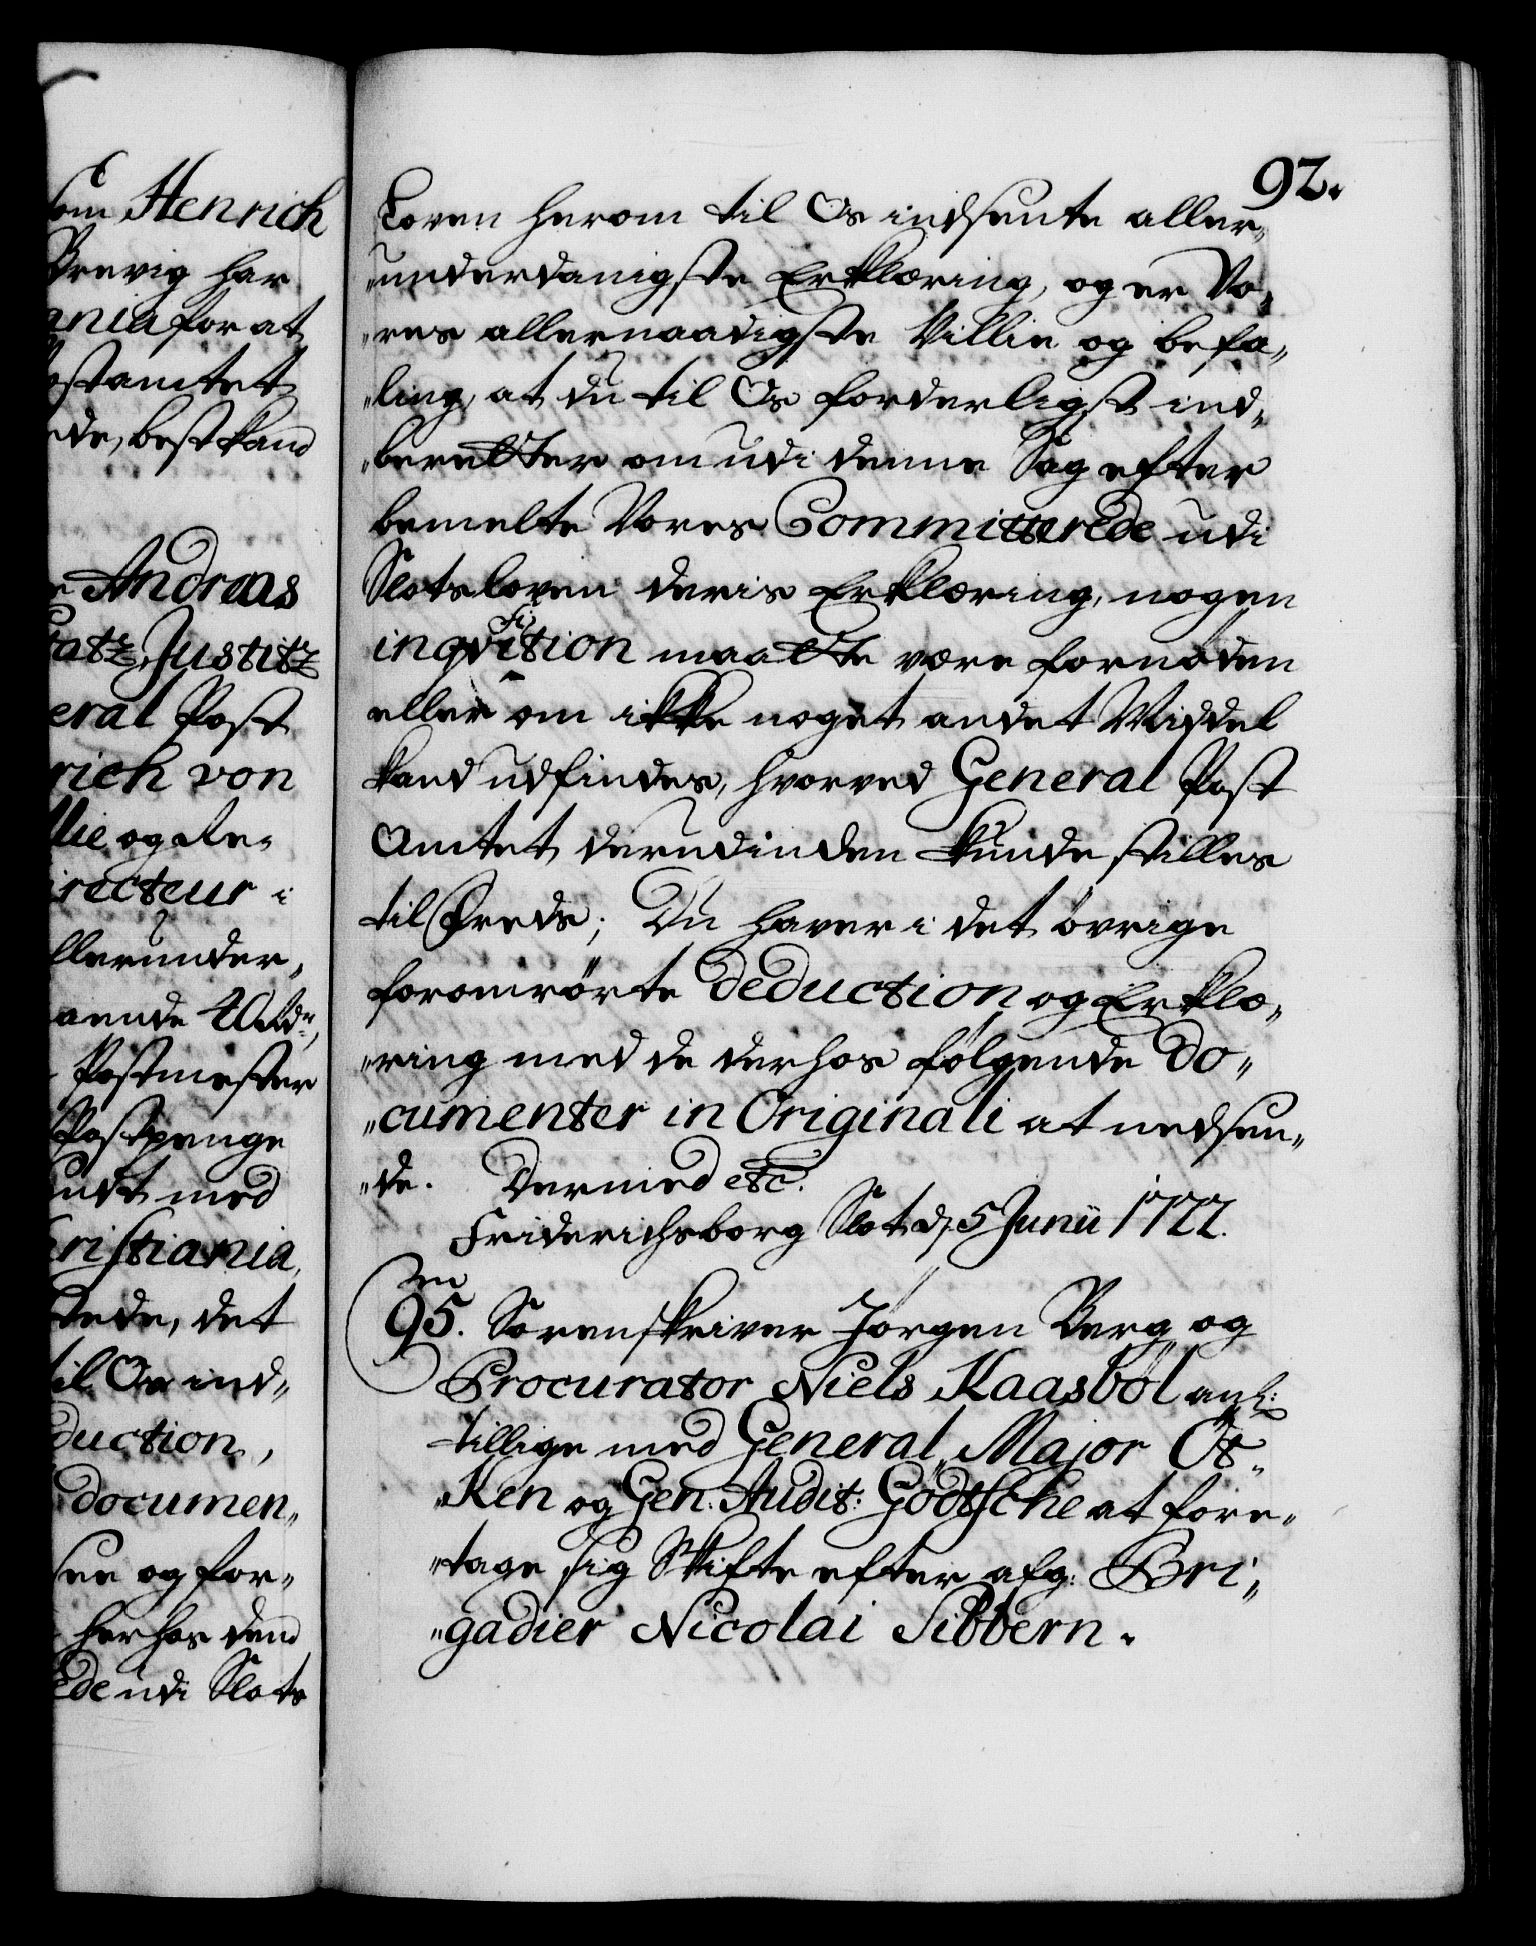 om Henrich
Brevig har
ania for at
ostamtet
de, best kand
Andreas
ratz, Justitz
eral Post
rich von
llie og De„
irecteur i
llerunder„
Postmester
Postpenge
sendt med
hristiania,
stede, det
til Os ind„
duction,
documen„
see og for„
herhos dend
ede udi Slots
92.
Loven herom til Os indsente aller„
„underdanigste Erklæring, og er Vo„
„res allernaadigste Villie og befa„
„ling, at du til Os forderligst ind„
„beretter om udi denne Sag efter
bemelte Vores Committerede udi
Slotsloven deris Erklæring, nogen
inqvisition maatte være fornøden
eller om ikke noget andet Middel
kand udfindes, hvorved General Post
Amtet derudinden kunde stilles
tilfreds; Du haver i det övrige
foromrörte deduction og Erklæ„
„ring med de derhos følgende Do„
„cumenter in Originali at nedsen„
„de. Dermed etc.
Friderichsborg Slot d. 5 Junii 1722.
95. Sorenskriver Jørgen Berg og
Procurator Niels Kaasböl anb:
tillige med General Major Öt„
„Ken og Gen: Audit: Gödtsche at fore„
„tage sig Skifte efter afg: Bri„
„gadier Nicolai Sibbern.